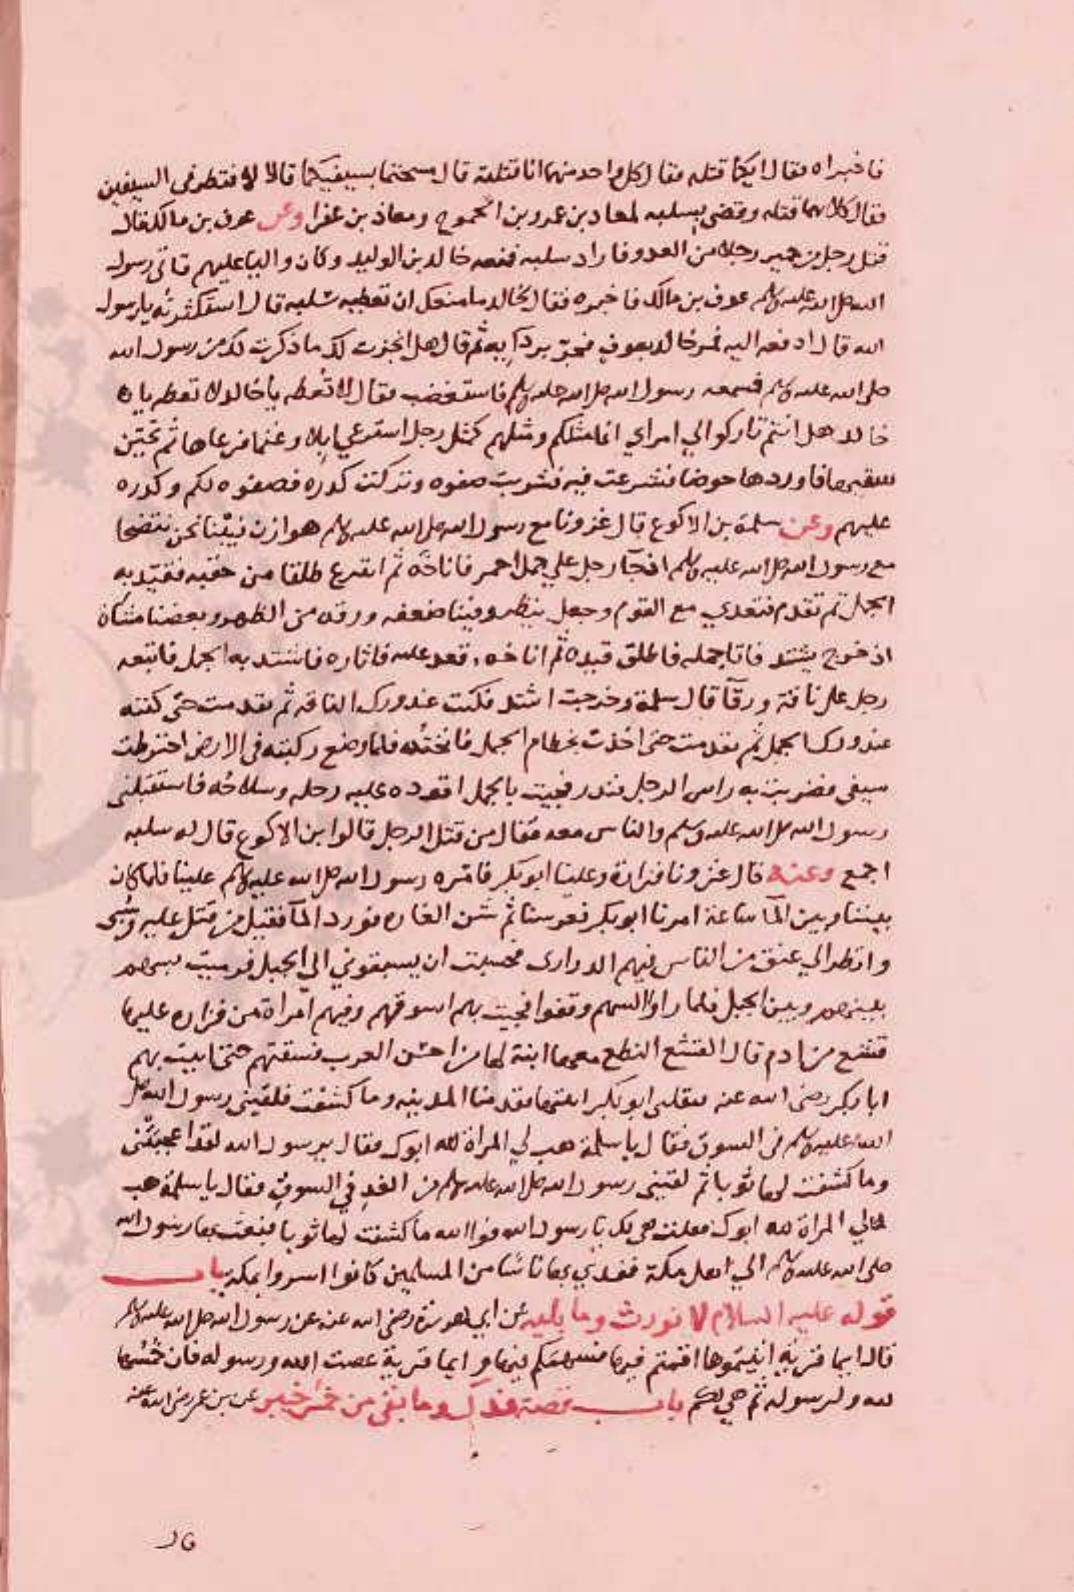 فاخبراه فقال ايكما قتله فقال كل واحد منهما انا قتلته قال مسحتما بسيفيكما قالا لا فنظر في السيفين
فقال كلاكما قتله وقضى بسلبه لمعاد بن عمرو بن الجموح ومعاذ بن عفرا وعن عوف بن مالك قال
قتل رجل من حمير رجلا من العدو فاراد سلبه فمنعه خالد بن الوليد وكان واليا عليهم فاتى رسول
الله صلى الله عليه وسلم عوف بن مالك فاخبره فقال لخالد ما منعك ان تعطيه سلبه قال استكثرته يا رسول
الله قال ادفعه اليه فمر خالد بعوف فجر بردايه ثم قال هل انجزت لك ما ذكرت لك من رسول الله
صلى الله عليه وسلم فسمعه رسول الله صلى الله عليه وسلم فاستغضب فقال لا تعطه يا خالد لا تعطه يا
خالد هل انتم تاركوا لي امراي انما مثلكم ومثلهم كمثل رجل استرعي ابلا وغنما فرعاها ثم تحين
سقيها فاوردها حوضا فشرعت فيه فشربت صفوه وتركت كدره فصفوه لكم وكدره
عليهم وعن سلمة بن الاكوع قال غزونا مع رسول الله صلى الله عليه وسلم هوازن فبينا نحن نتضحا
مع رسول الله صلى الله عليه وسلم اذ جآ رجل علي جمل احمر فاناخه ثم انتزع طلقا من حقبه فقيد به
الجمل ثم تقدم فتغدي مع القوم وجعل ينظر وفينا ضعفه ورقه من الظهر وبعضنا مشاة
اذ خرج يشتد فاتا جمله فاطلق قيده ثم اناخه وقعد عليه فاثاره فاشتد به الجمل فاتبعه
رجل على ناقة ورقآ قال سلمة وخرجت اشتد فكنت عند ورك الناقه ثم تقدمت حتى كنت
عند ورك الجمل ثم تقدمت حتى اخذت بخطام الجمل فانخته فلما وضع ركبته في الارض اخترطت
سيفي فضربت به راس الرجل فندر فجيت بالجمل اقوده عليه رحله وسلاحه فاستقبلني
رسول الله صلى الله عليه وسلم والناس معه فقال من قتل الرجل قالوا ابن الاكوع قال له سلبه
اجمع وعنه قال غزونا فزارة وعلينا ابو بكر فامره رسول الله صلى الله عليه وسلم علينا فلما كان
بيننا وبين المآ ساعة امرنا ابو بكر فعرسنا ثم شن الغاره فورد المآ فقتل من قتل عليه وسبى
وانظر الي عنق من الناس فيهم الدراري فخشيت ان يسبقوني الي الجبل فرميت بسهم
بينهم وبين الجبل فلما راوا السهم وقفوا فجيت بهم اسوقهم وفيهم امراة من فزاره عليها
قشع من ادم قال القشع النطع معها ابنة لها من احسن العرب فسقتهم حتى اتيت بهم
ابا بكر رضي الله عنه فنفلني ابو بكر ابنتها فقدمنا المدينه وما كشفت فلقيني رسول الله صلى
الله عليه وسلم في السوق فقال يا سلمة هب لي المراة لله ابوك فقال يرسول الله لقد اعجبتني
وما كشفت لها ثوبا ثم لقيني رسول الله صلى الله عليه وسلم من الغد في السوق فقال يا سلمة هب
لي المراة لله ابوك فقلت هي لك يا رسول الله فوالله ما كشفت لها ثوبا فبعث بها رسول الله
صلى الله عليه وسلم الي اهل مكة ففدي بها ناسا من المسلمين كانوا اسروا بمكة باب
قوله عليه السلام لا نورث وما يليه عن ابي هريرة رضي الله عنه عن رسول الله صلى الله عليه وسلم
قال ايما قرية اتيتموها اقمتم فيها فسهمكم فيها وايما قرية عصت الله ورسوله فان خمسها
لله ولرسوله ثم هي لكم باب قصة فدك وما بقي من خمس خيبر عن بن عمر رضي الله عنه